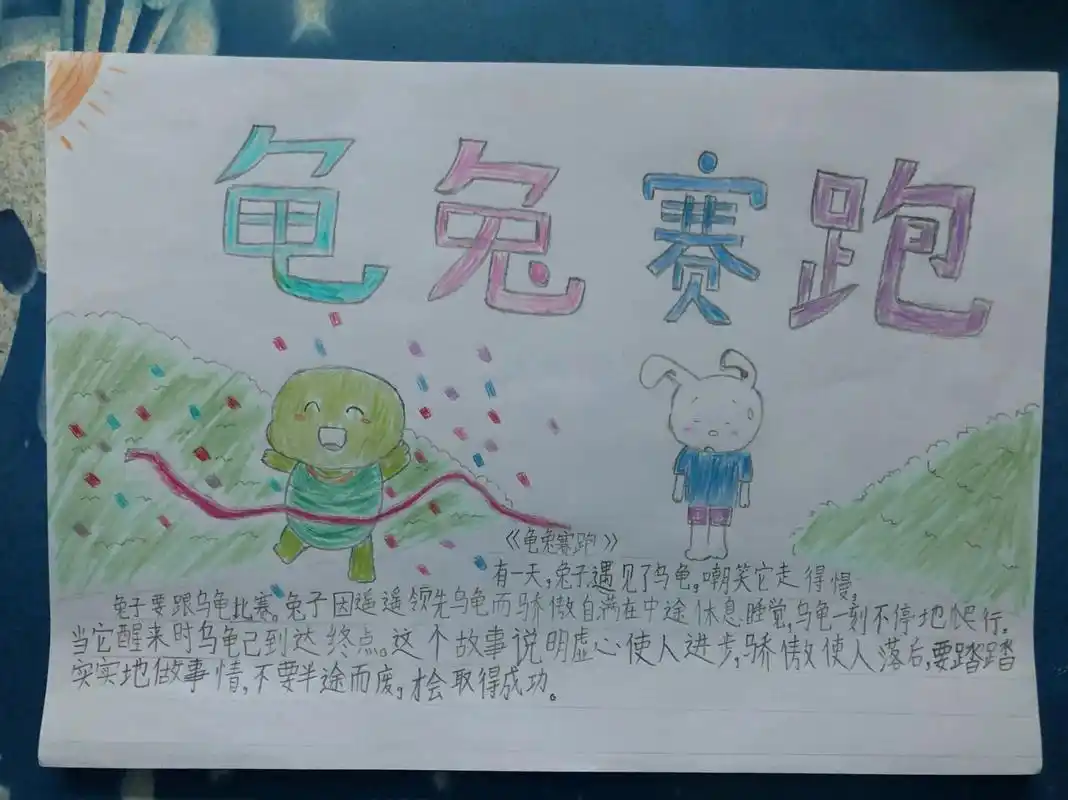 龟兔赛跑
《龟兔赛跑》
有一天,兔子遇见了乌龟,嘲笑它走得慢,
兔子要跟乌龟比赛。兔子因遥遥领先乌龟而骄傲自满在中途休息睡觉,乌龟一刻不停地爬行.
当它醒来时乌龟己到达终点。这个故事说明虚心使人进步,骄傲使人落后,要踏踏
实实地做事情,不要半途而废,才会取得成功。